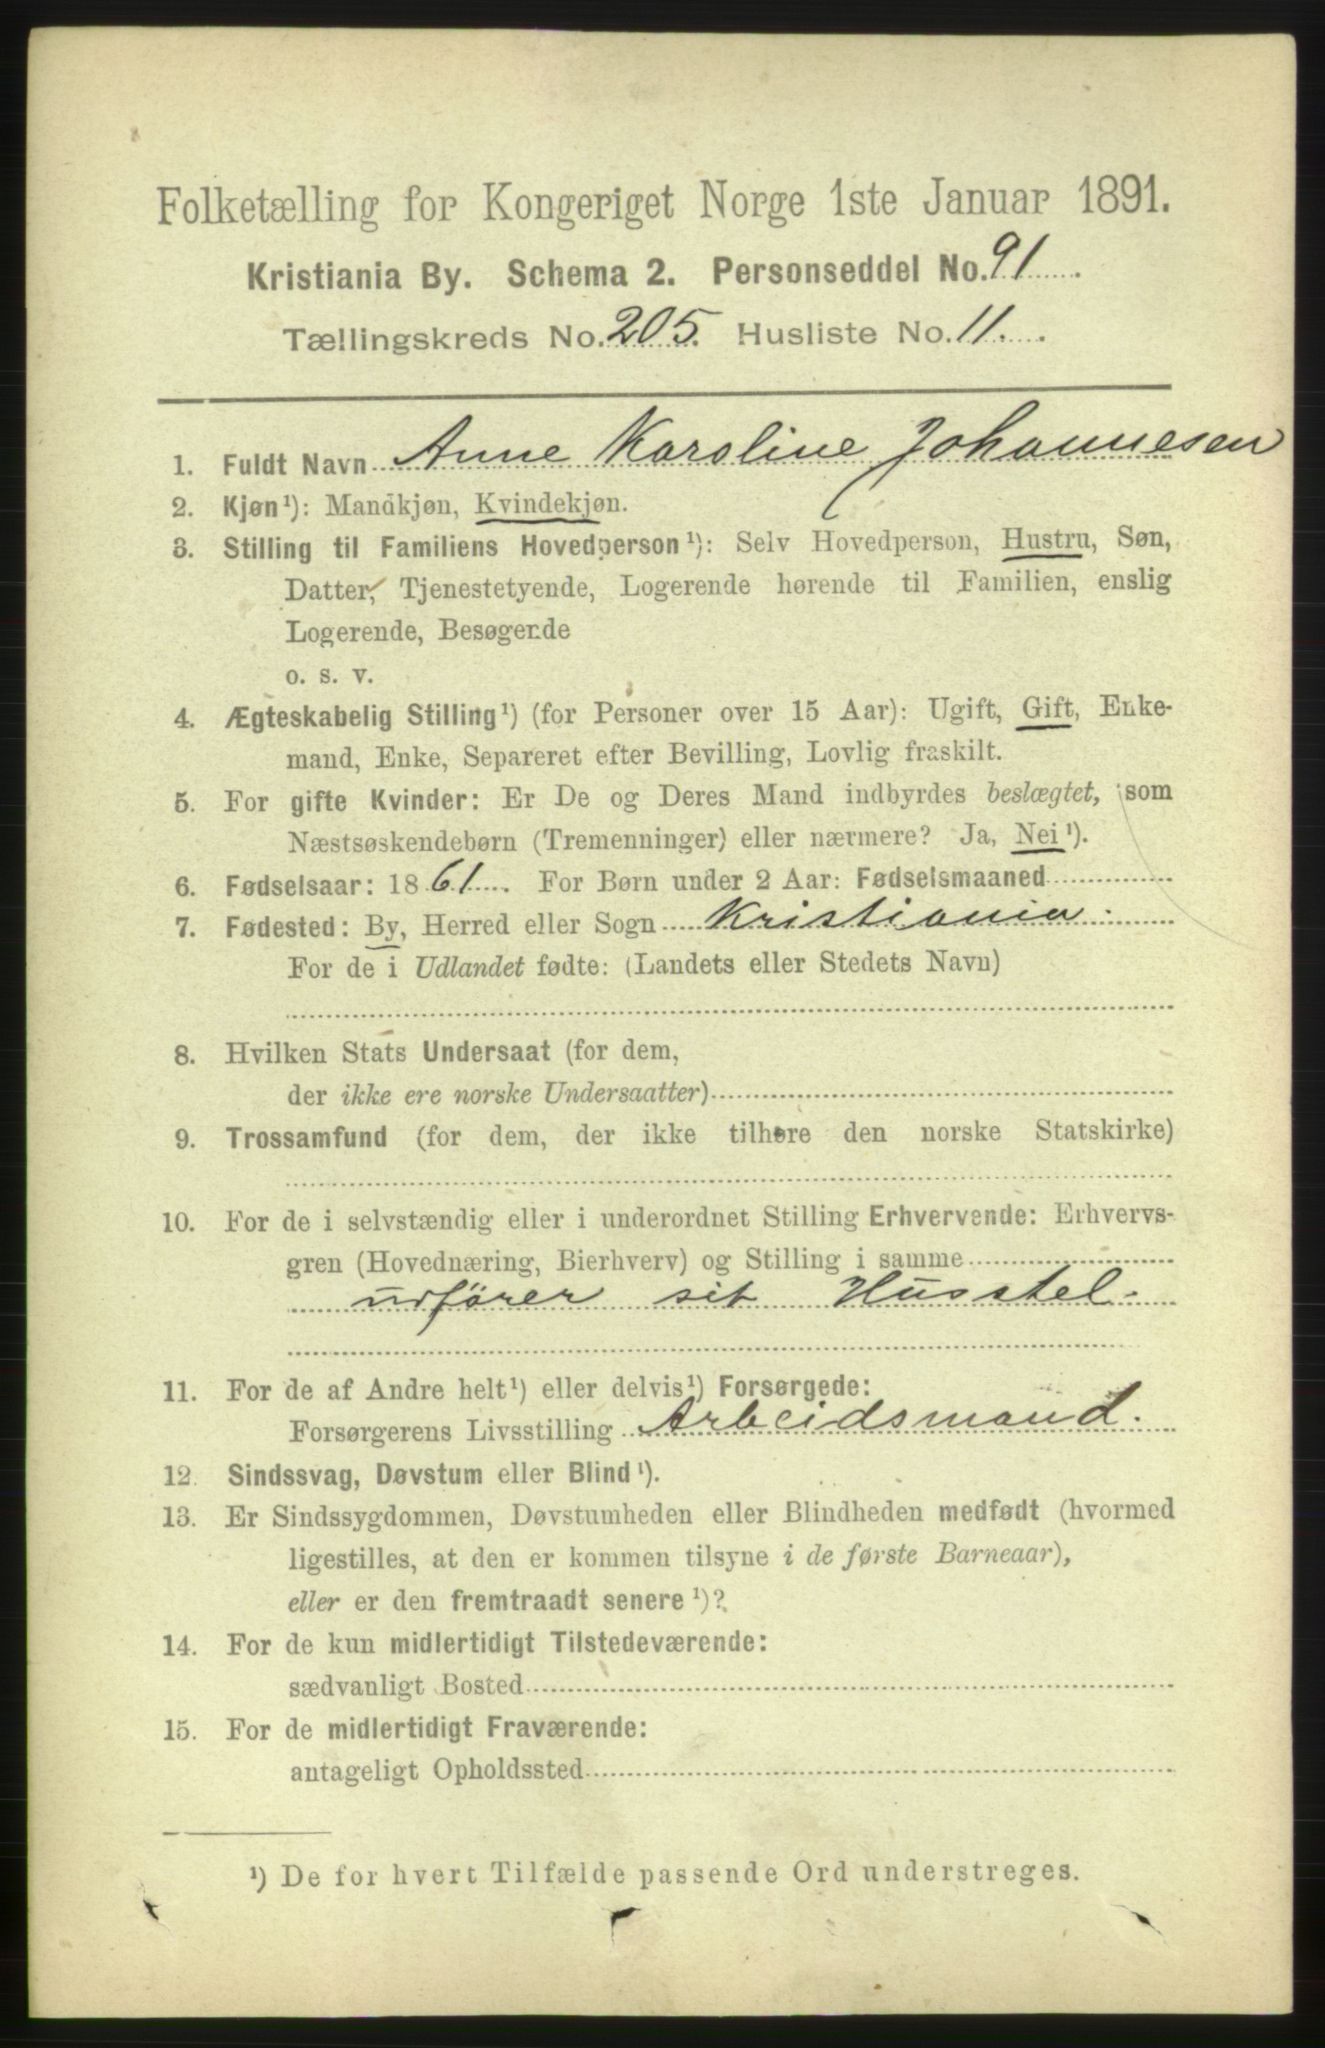 Folketælling for Kongeriget Norge 1ste Januar 1891.
Kristiania By. Schema 2. Personseddel No. 91
Tællingskreds No. 205. Husliste No. 11.
1. Fuldt Navn Anne Karoline Johannesen
2. Kjøn¹): Mandkjøn, Kvindekjøn.
3. Stilling til Familiens Hovedperson¹): Selv Hovedperson, Hustru, Søn,
Datter, Tjenestetyende, Logerende hørende til Familien, enslig
Logerende, Besøgende
o. s. v.
4. Ægteskabelig Stilling¹) (for Personer over 15 Aar): Ugift, Gift, Enke-
mand, Enke, Separeret efter Bevilling, Lovlig fraskilt.
5. For gifte Kvinder: Er De og Deres Mand indbyrdes beslægtet, som
Næstsøskendebørn (Tremenninger) eller nærmere? Ja, Nei¹).
6. Fødselsaar: 1861. For Børn under 2 Aar: Fødselsmaaned
7. Fødested: By, Herred eller Sogn Kristiania.
For de i Udlandet fødte: (Landets eller Stedets Navn)
8. Hvilken Stats Undersaat (for dem,
der ikke ere norske Undersaatter)
9. Trossamfund (for dem, der ikke tilhøre den norske Statskirke)
10. For de i selvstændig eller i underordnet Stilling Erhvervende: Erhvervs-
gren (Hovednæring, Bierhverv) og Stilling i samme
udfører sit Husstel.
11. For de af Andre helt¹) eller delvis¹) Forsørgede:
Forsørgerens Livsstilling Arbeidsmand.
12. Sindssvag, Døvstum eller Blind¹).
13. Er Sindssygdommen, Døvstumheden eller Blindheden medfødt (hvormed
ligestilles, at den er kommen tilsyne i de første Barneaar),
eller er den fremtraadt senere¹)?
14. For de kun midlertidigt Tilstedeværende:
sædvanligt Bosted
15. For de midlertidigt Fraværende:
antageligt Opholdssted
¹) De for hvert Tilfælde passende Ord understreges.